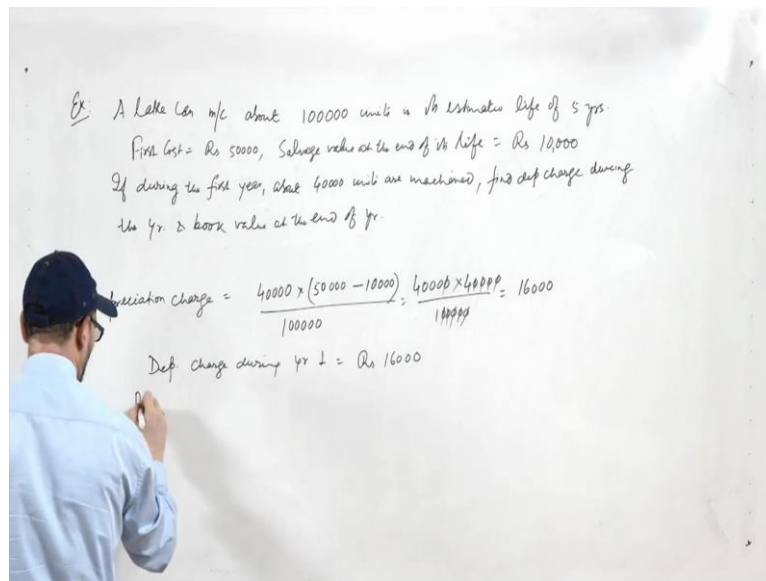 Ex: A lathe can m/c about 100000 units in its estimated life of 5 yrs.
First Cost = Rs 50000, Salvage value at the end of its life = Rs 10,000
If during the first year, about 40000 units are machined, find dep charge during
the yr. & book value at the end of yr.
preciation charge = 40000 x (50000 - 10000) / 100000 = 40000 x 40000 / 100000 = 16000
Dep. charge during yr 1 = Rs 16000